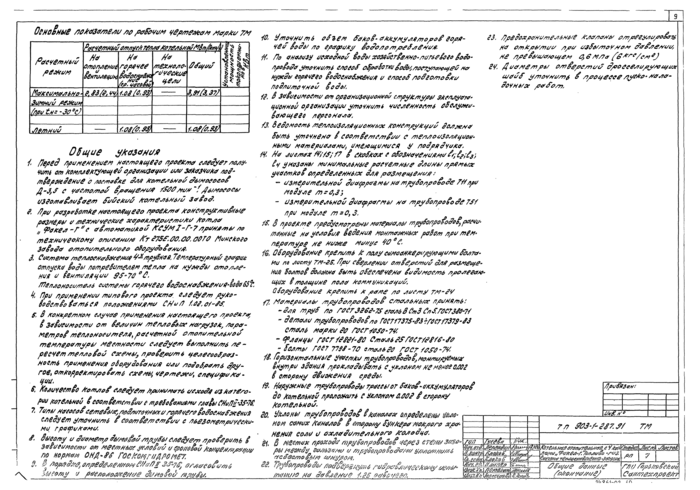 9
Основные показатели по рабочим чертежам марки ТМ
Расчетный режим
Расчетный отпуск тепла котельной МВт(Гкал/ч)
На отопление и вентиляцию
На горячее водоснабжение
На технологические цели
Общий
Зимний режим
(при t н.о -30°С)
Летний
1.08 (0.93)
1.08 (0.93)
Общие указания
1. Перед применением настоящего проекта следует полу-
чить от комплектующей организации или заказчика под-
тверждение о поставке для котельной дымососов
Д-3,5 с частотой вращения 1500 мин⁻¹. Дымососы
изготавливает Бийский котельный завод.
2. При разработке настоящего проекта конструктивные
размеры и технические характеристики котла
"Факел-Г" с автоматикой КСУМ 1-Г-7 приняты по
техническому описанию Кт 2756.00.00.00ТО Минского
завода отопительного оборудования.
3. Система теплоснабжения 4х трубная. Температурный график
отпуска воды потребителям тепла на нужды отопле-
ния и вентиляции 95-70°С.
Теплоноситель системы горячего водоснабжения - вода 65°С.
4. При применении типового проекта следует руко-
водствоваться положениями СНиП 1.02.01-85.
5. В конкретном случае применения настоящего проекта,
в зависимости от величин тепловых нагрузок, пара-
метров теплоносителя, расчетной отопительной
температуры местности следует выполнить пе-
ресчет тепловой схемы, проверить целесообраз-
ность применения оборудования или подобрать дру-
гое, откорректировать схемы, чертежи, специфика-
ции.
6. Количество котлов следует принимать исходя из катего-
рии котельной в соответствии с требованиями главы СНиП II-35-76.
7. Типы насосов сетевых, подпиточных и горячего водоснабжения
следует уточнить в соответствии с пьезометрически-
ми графиками.
8. Высоту и диаметр дымовой трубы следует проверить в
зависимости от местных условий и фоновой концентрации
по нормам ОНД-86 Госкомгидромет.
9. В порядке, определенном СНиП II-35-76, согласовать
высоту и расположение дымовой трубы.
10. Уточнить объем баков-аккумуляторов горя-
чей воды по графику водопотребления.
11. По анализу исходной воды хозяйственно-питьевого водо-
провода уточнить способ обработки воды, поступающей на
нужды горячего водоснабжения и способ подготовки
подпиточной воды.
12. В зависимости от организационной структуры эксплуата-
ционной организации уточнить численность обслужи-
вающего персонала.
13. Ведомость теплоизоляционных конструкций должна
быть уточнена в соответствии с теплоизоляцион-
ными материалами, имеющимися у подрядчика.
14. На листах 14; 15; 17 в скобках с обозначениями
указаны минимальные расчетные длины прямых
участков определенных для размещения:
— измерительной диафрагмы на трубопроводе Т11 при
модуле m=0,3;
— измерительной диафрагмы на трубопроводе Т51
при модуле m=0,3.
15. В проекте предусмотрены материалы трубопроводов, рассчи-
танные на условия ведения монтажных работ при тем-
пературе не ниже минус 40°С.
16. Оборудование крепить к полу самоанкерующимися болта-
ми по листу ТМ-25. При сверлении отверстий для размеще-
ния болтов должна быть обеспечена видимость пролегаю-
щих в толщине пола коммуникаций.
Оборудование крепить к раме по листу ТМ-24
17. Материалы трубопроводов стальных принять:
— для труб по ГОСТ 3262-75
— детали трубопроводов по ГОСТ 17375-83÷ГОСТ 17379-83
сталь марки 20 ГОСТ 1050-74.
— фланцы ГОСТ 12821-80 Сталь 25 ГОСТ 10816-80
— болты ГОСТ 7798-70 сталь 20 ГОСТ 1050-74
18. Горизонтальные участки трубопроводов, монтируемых
внутри здания прокладывать с уклоном не менее 0.002
в сторону движения среды.
19. Наружные трубопроводы трассы от баков-аккумуляторов
до котельной проложить с уклоном 0.002 в сторону
котельной.
20. Уклоны трубопроводов в каналах определены укло-
ном самих каналов в сторону бункера мокрого хра-
нения соли и охладительного колодца.
21. В местах прохода трубопроводов через стены зазо-
ры между гильзами и трубопроводами уплотнить
асбестовым шнуром.
22. Трубопроводы подвергнуть гидравлическому испы-
танию на давление 1.25 рабочего.
23. Предохранительные клапаны отрегулировать
на открытие при избыточном давлении,
не превышающем 0,6 МПа (6 кгс/см²)
24. Диаметры отверстий дросселирующих
шайб уточнить в процессе пуско-нала-
дочных работ.
Привязан:
Инв. №
ТП 903-1-287.91 ТМ
Стадия Лист Листов
РП 7
Общие данные
(окончание)
ГПИ Горьковский
Сантехпроект